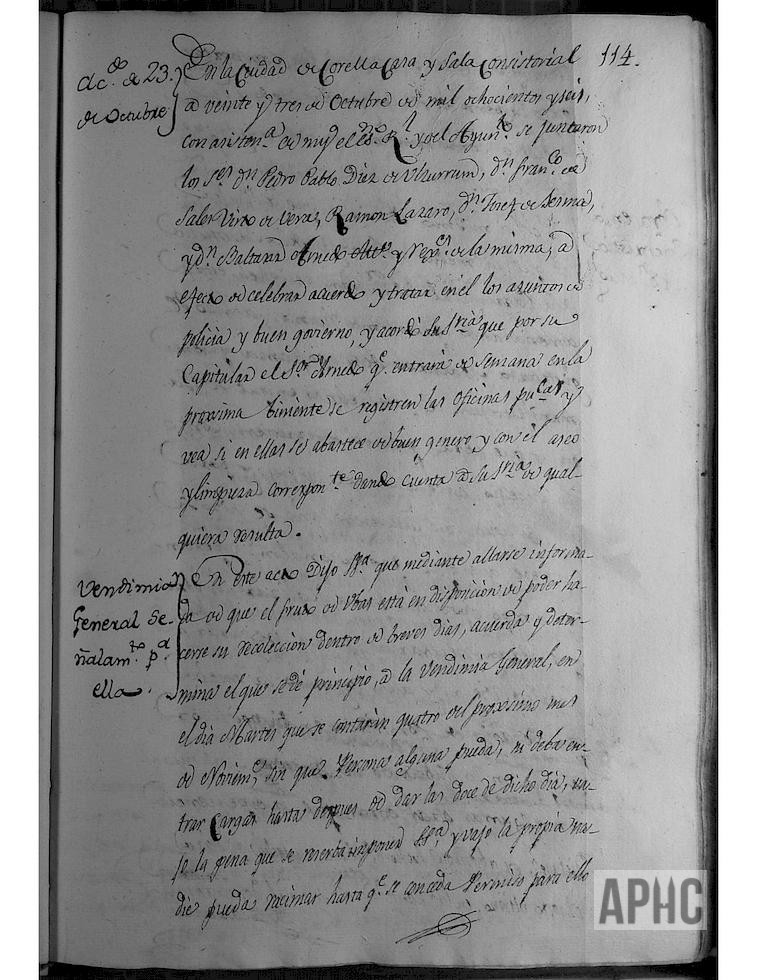 114.
Ac.do de 23.
de Octubre
En la Ciudad de Corella Casa y Sala Consistorial
a veinte y tres de Octubre de mil ochocientos y seis,
con asisten.a de mi el es.no R.l y del Ayun.to se juntaron
los S.res d.n Pedro Pablo Diez de Ulzurrun, d.n Fran.co de
Sales Virto de Vera, Ramon Lazaro, d.n Josef de Sesma,
y d.n Baltasar Arnedo Alc.e y Rex.es de la misma, a
efecto de celebrar acuerdo y tratar en el los asuntos de
policia y buen govierno, y acordó Su S.ria que por su
Capitular el S.or Arnedo q.e entrara de Semana en la
proxima biniente se registren las Oficinas pu.cas y
vea si en ellas se abastece de buen genero y con el aseo
y limpieza correspon.te dando cuenta a Su S.ria de qual-
quiera resulta.
Vendimia
General Se-
ñalam.to p.a
ella.
En este acto Dijo SS.a que mediante allarse informa-
da de que el fruto de Ubas está en disposicion de poder ha-
cerse su recoleccion dentro de breves dias, acuerda y deter-
mina el que se dé principio, a la Vendimia General, en
el dia Martes que se contarán quatro del proximo mes
de Noviem.e sin que Persona alguna pueda, ni deba en-
trar Cargas hasta despues de dar las doce de dicho dia, va-
jo la pena que se reserba imponer SS.a y vajo la propia na-
die pueda racimar hasta q.e se conceda Permiso para ello
APHC